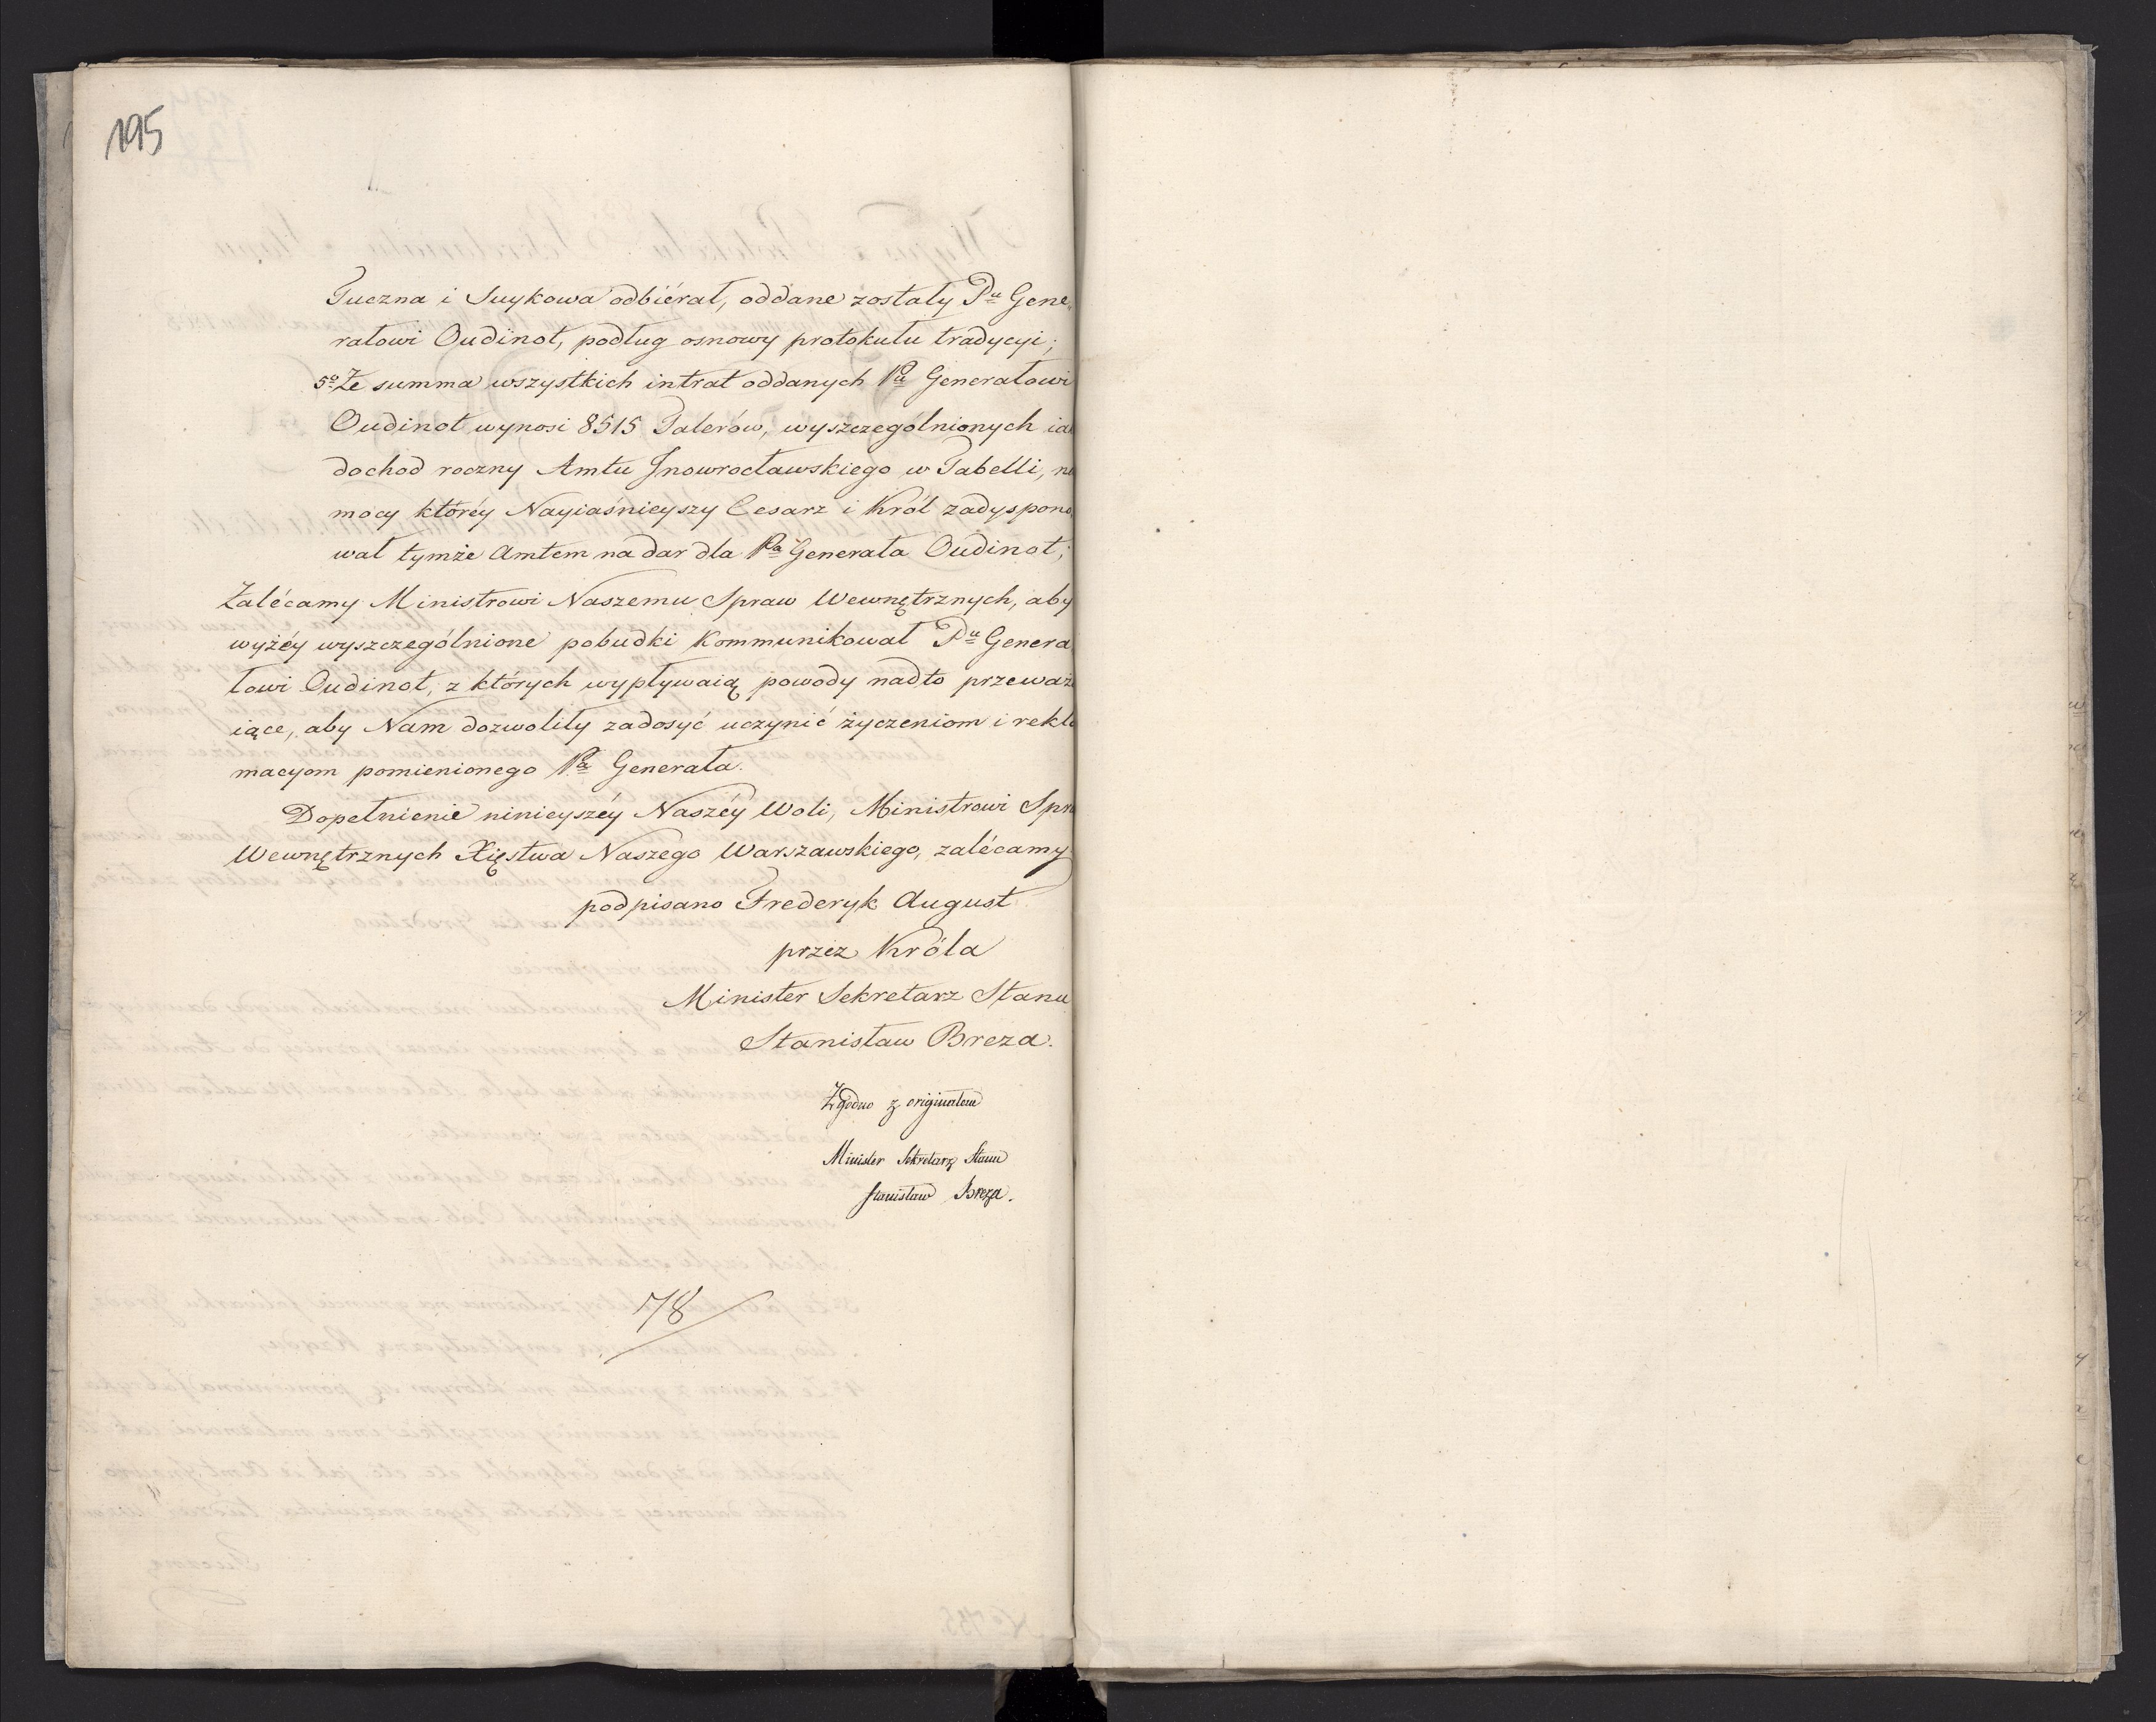 195
Tuczna i Suykowa odbiérał, oddane zostały Pu Gene-
rałowi Oudinot, podług osnowy protokułu tradycyi;
5o Że summa wszystkich intrat oddanych Pu Generałowi
Oudinot wynosi 8515 Talerów, wyszczególnionych iak
dochod roczny Amtu Jnowrocławskiego w Tabelli, na
mocy któréy Nayiaśnieyszy Cesarz i Król zadyspono
wał tymże Amtem na dar dla Pa Generała Oudinot;
Zalécamy Ministrowi Naszemu Spraw Wewnętrznych, aby
wyżéy wyszczególnione pobudki kommunikował Pu Genera
łowi Oudinot, z których wypływaią powody nadto przeważa
iące, aby Nam dozwoliły zadosyć uczynić życzeniom i rekla
macyom pomienionego Pa Generała.
Dopełnienie ninieyszéy Naszéy Woli, Ministrowi Spra
Wewnętrznych Xięstwa Naszego Warszawskiego, zalécamy
podpisano Frederyk August
przez Króla
Minister Sekretarz Stanu
Stanisław Breza.
Zgodno z originałem
Minister Sekretarz Stanu
Stanisław Breza.
78